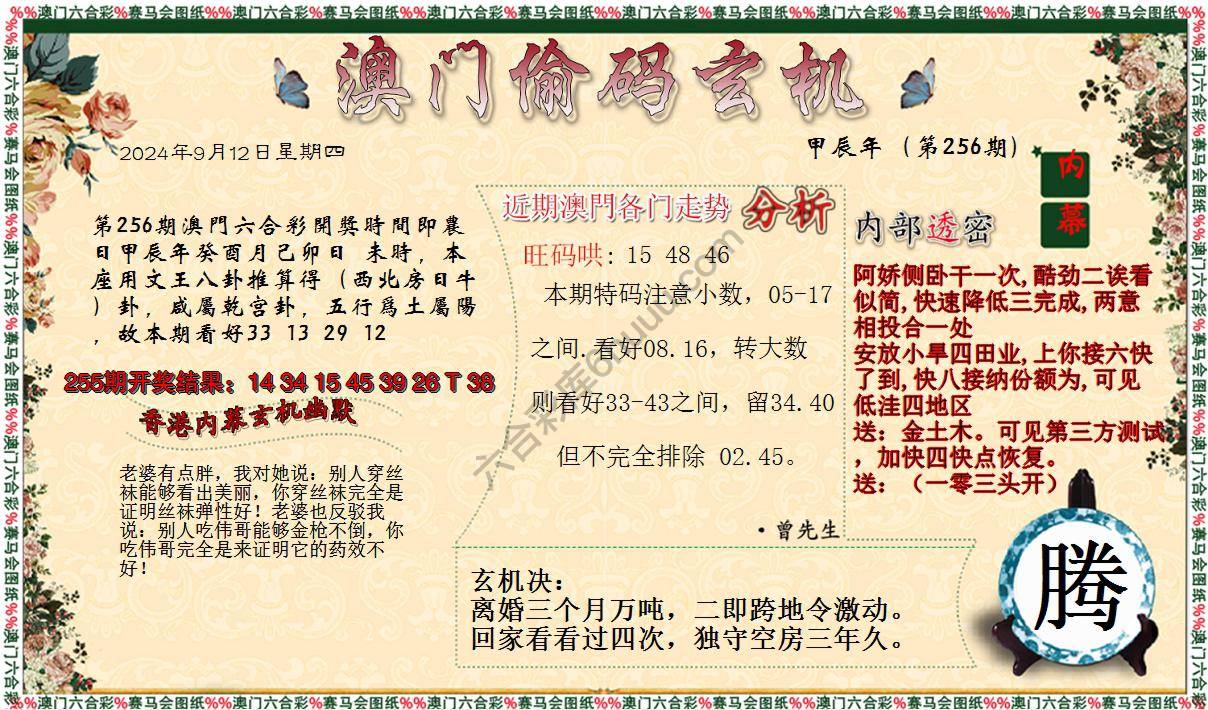 %%澳门六合彩%赛马会图纸%%澳门六合彩%赛马会图纸%%澳门六合彩%赛马会图纸%%澳门六合彩%赛马会图纸%%澳门六合彩%赛马会图纸%%澳门六合彩%赛马会图纸%%
澳门偷码玄机
2024年9月12日星期四
甲辰年（第256期）
内幕
第256期澳門六合彩開獎時間即農
日甲辰年癸酉月己卯日 未時，本
座用文王八卦推算得（西北房日牛
）卦，咸屬乾宫卦，五行爲土屬陽
，故本期看好33 13 29 12
255期开奖结果：14 34 15 45 39 26 T 38
香港内幕玄机幽默
老婆有点胖，我对她说：别人穿丝
袜能够看出美丽，你穿丝袜完全是
证明丝袜弹性好！老婆也反驳我
说：别人吃伟哥能够金枪不倒，你
吃伟哥完全是来证明它的药效不
好！
近期澳門各门走势 分析
旺码哄: 15 48 46
本期特码注意小数，05-17
之间.看好08.16，转大数
则看好33-43之间，留34.40
但不完全排除 02.45。
·曾先生
内部透密
阿娇侧卧干一次,酷劲二诶看
似简,快速降低三完成,两意
相投合一处
安放小旱四田业,上你接六快
了到,快八接纳份额为,可见
低洼四地区
送：金土木。可见第三方测试
，加快四快点恢复。
送：（一零三头开）
玄机决：
离婚三个月万吨，二即跨地令激动。
回家看看过四次，独守空房三年久。
腾
%%澳门六合彩%赛马会图纸%%澳门六合彩%赛马会图纸%%澳门六合彩%赛马会图纸%%澳门六合彩%赛马会图纸%%澳门六合彩%赛马会图纸%%澳门六合彩%赛马会图纸%%